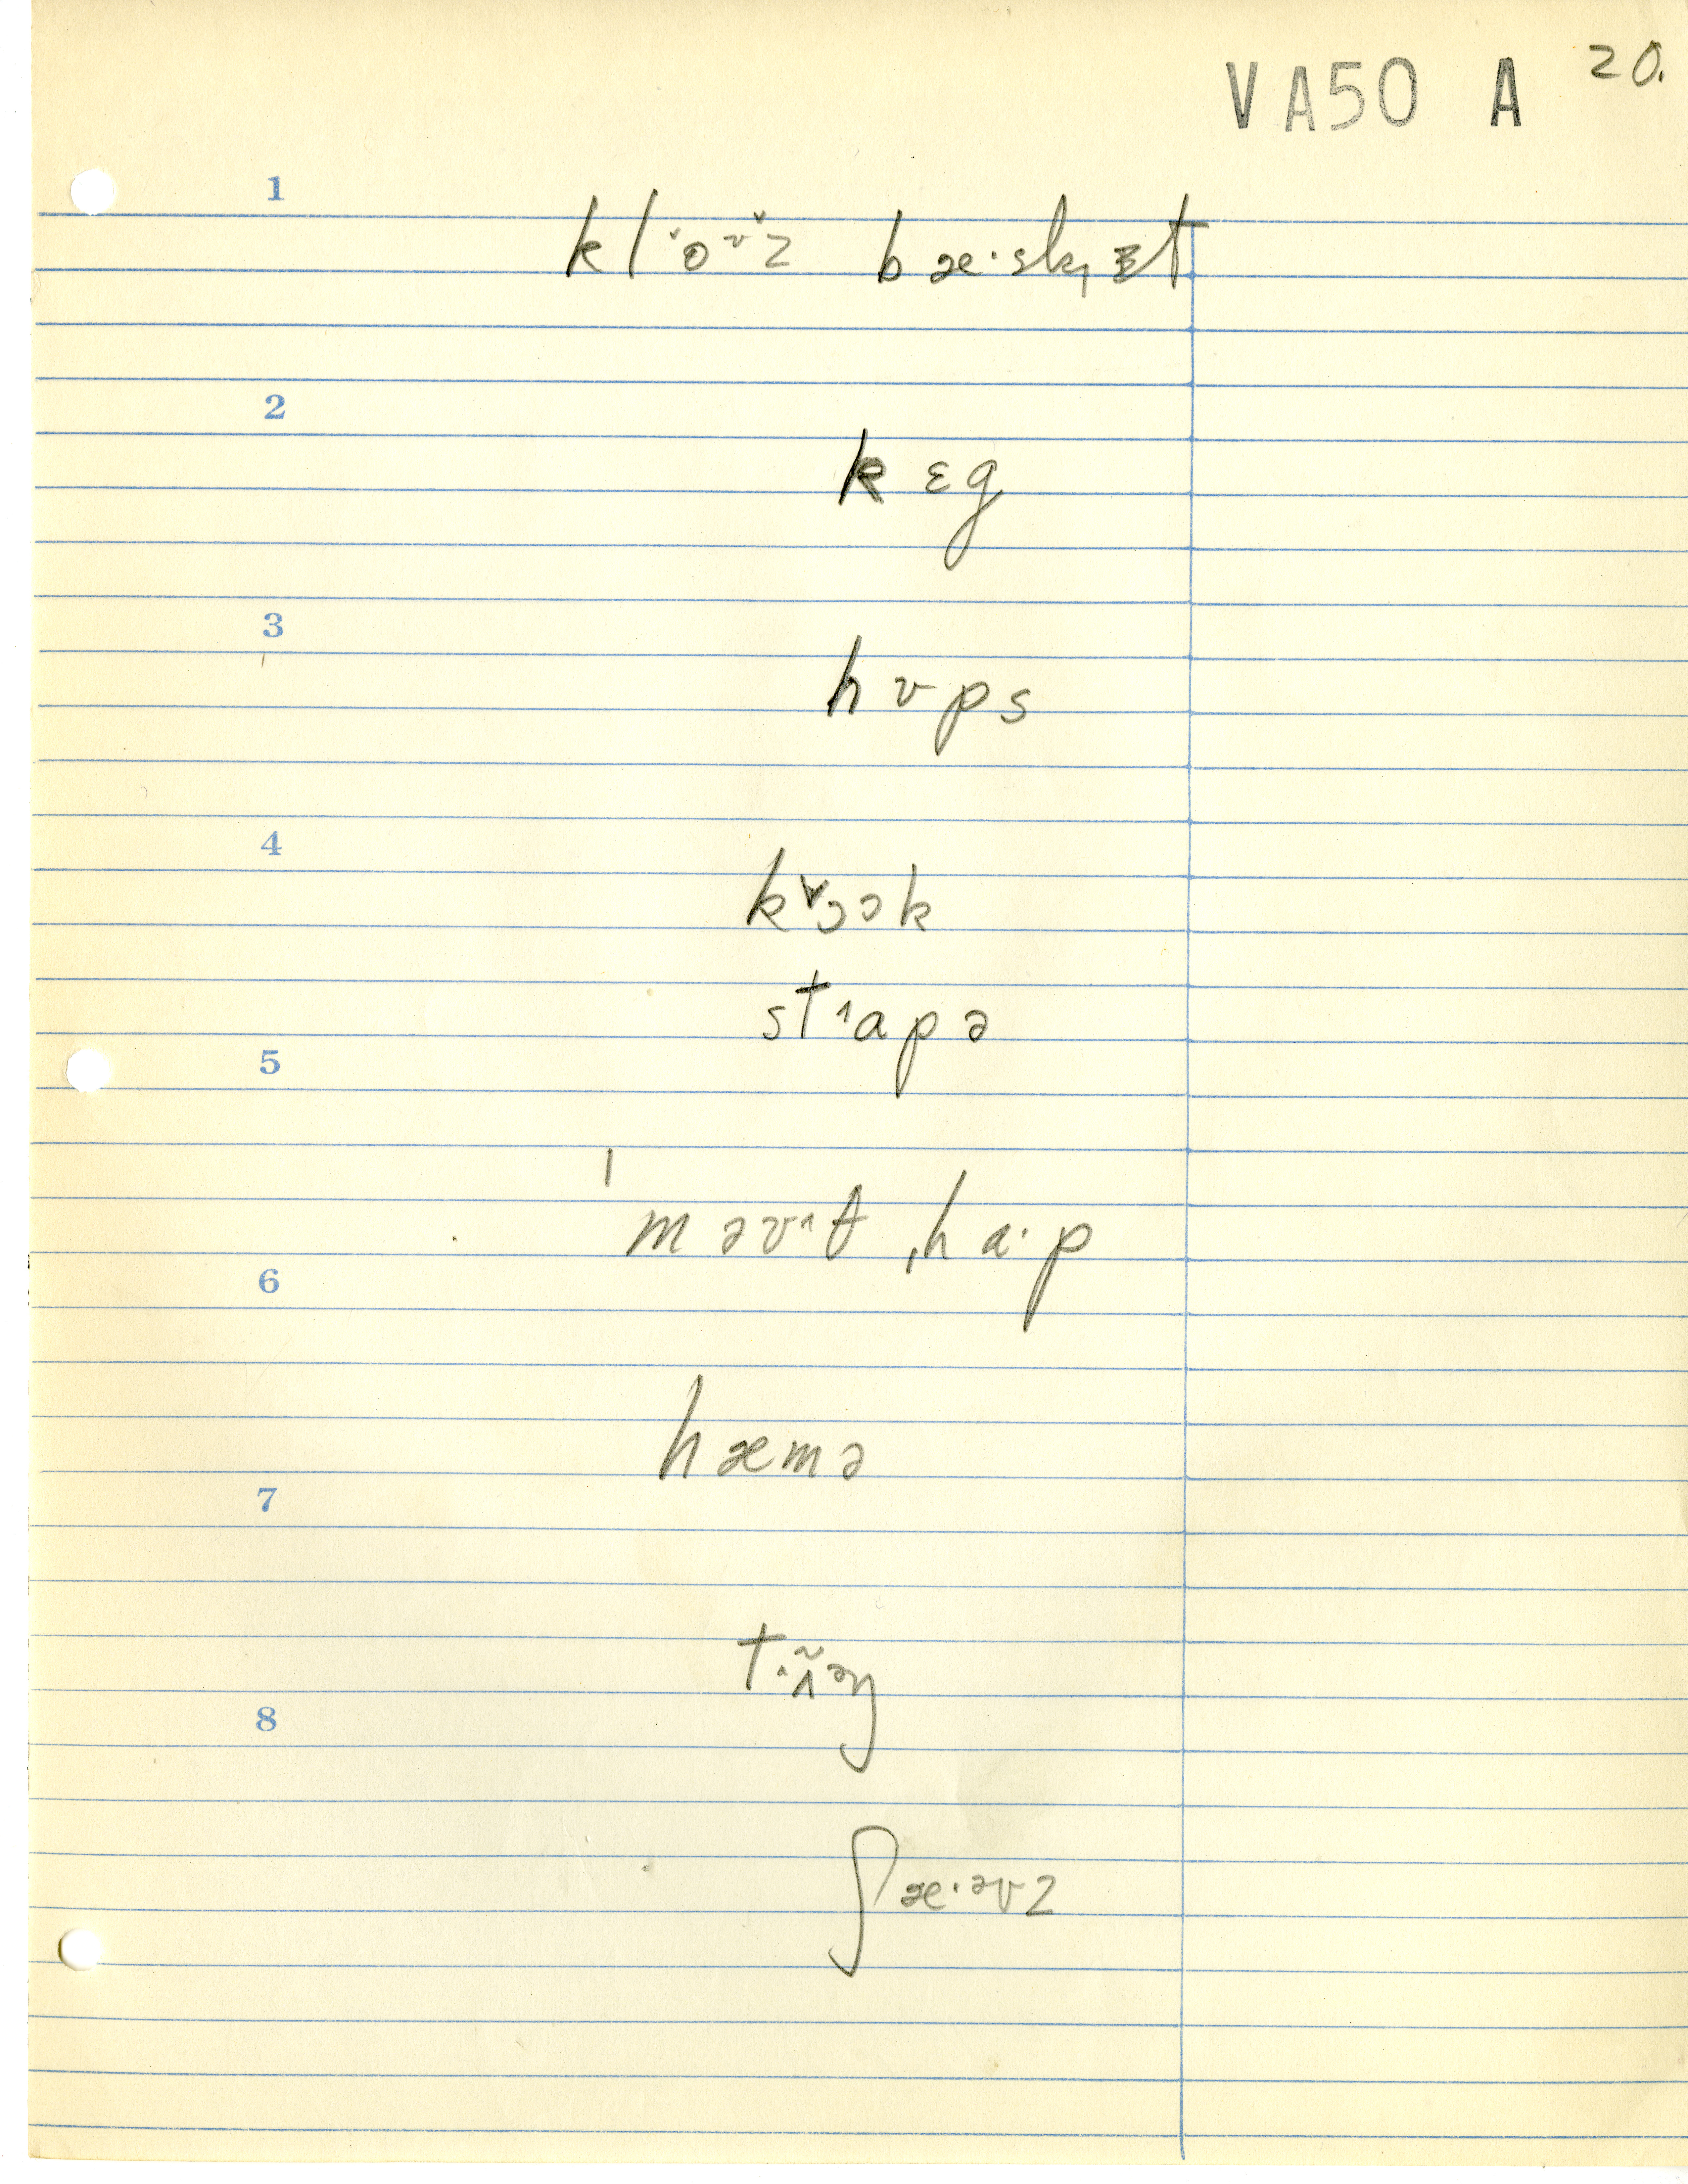 VA50 A 20.
1
klo˞ʊz̆ bæ·sk,ɪt
2
kɛg
3
hʊps
4
k˅ɔək
st˄apə
5
ˈməʊ˄θ ˌha·p
6
hæmə
7
t.ʌ̃əŋ
8
ʃæ·əvz